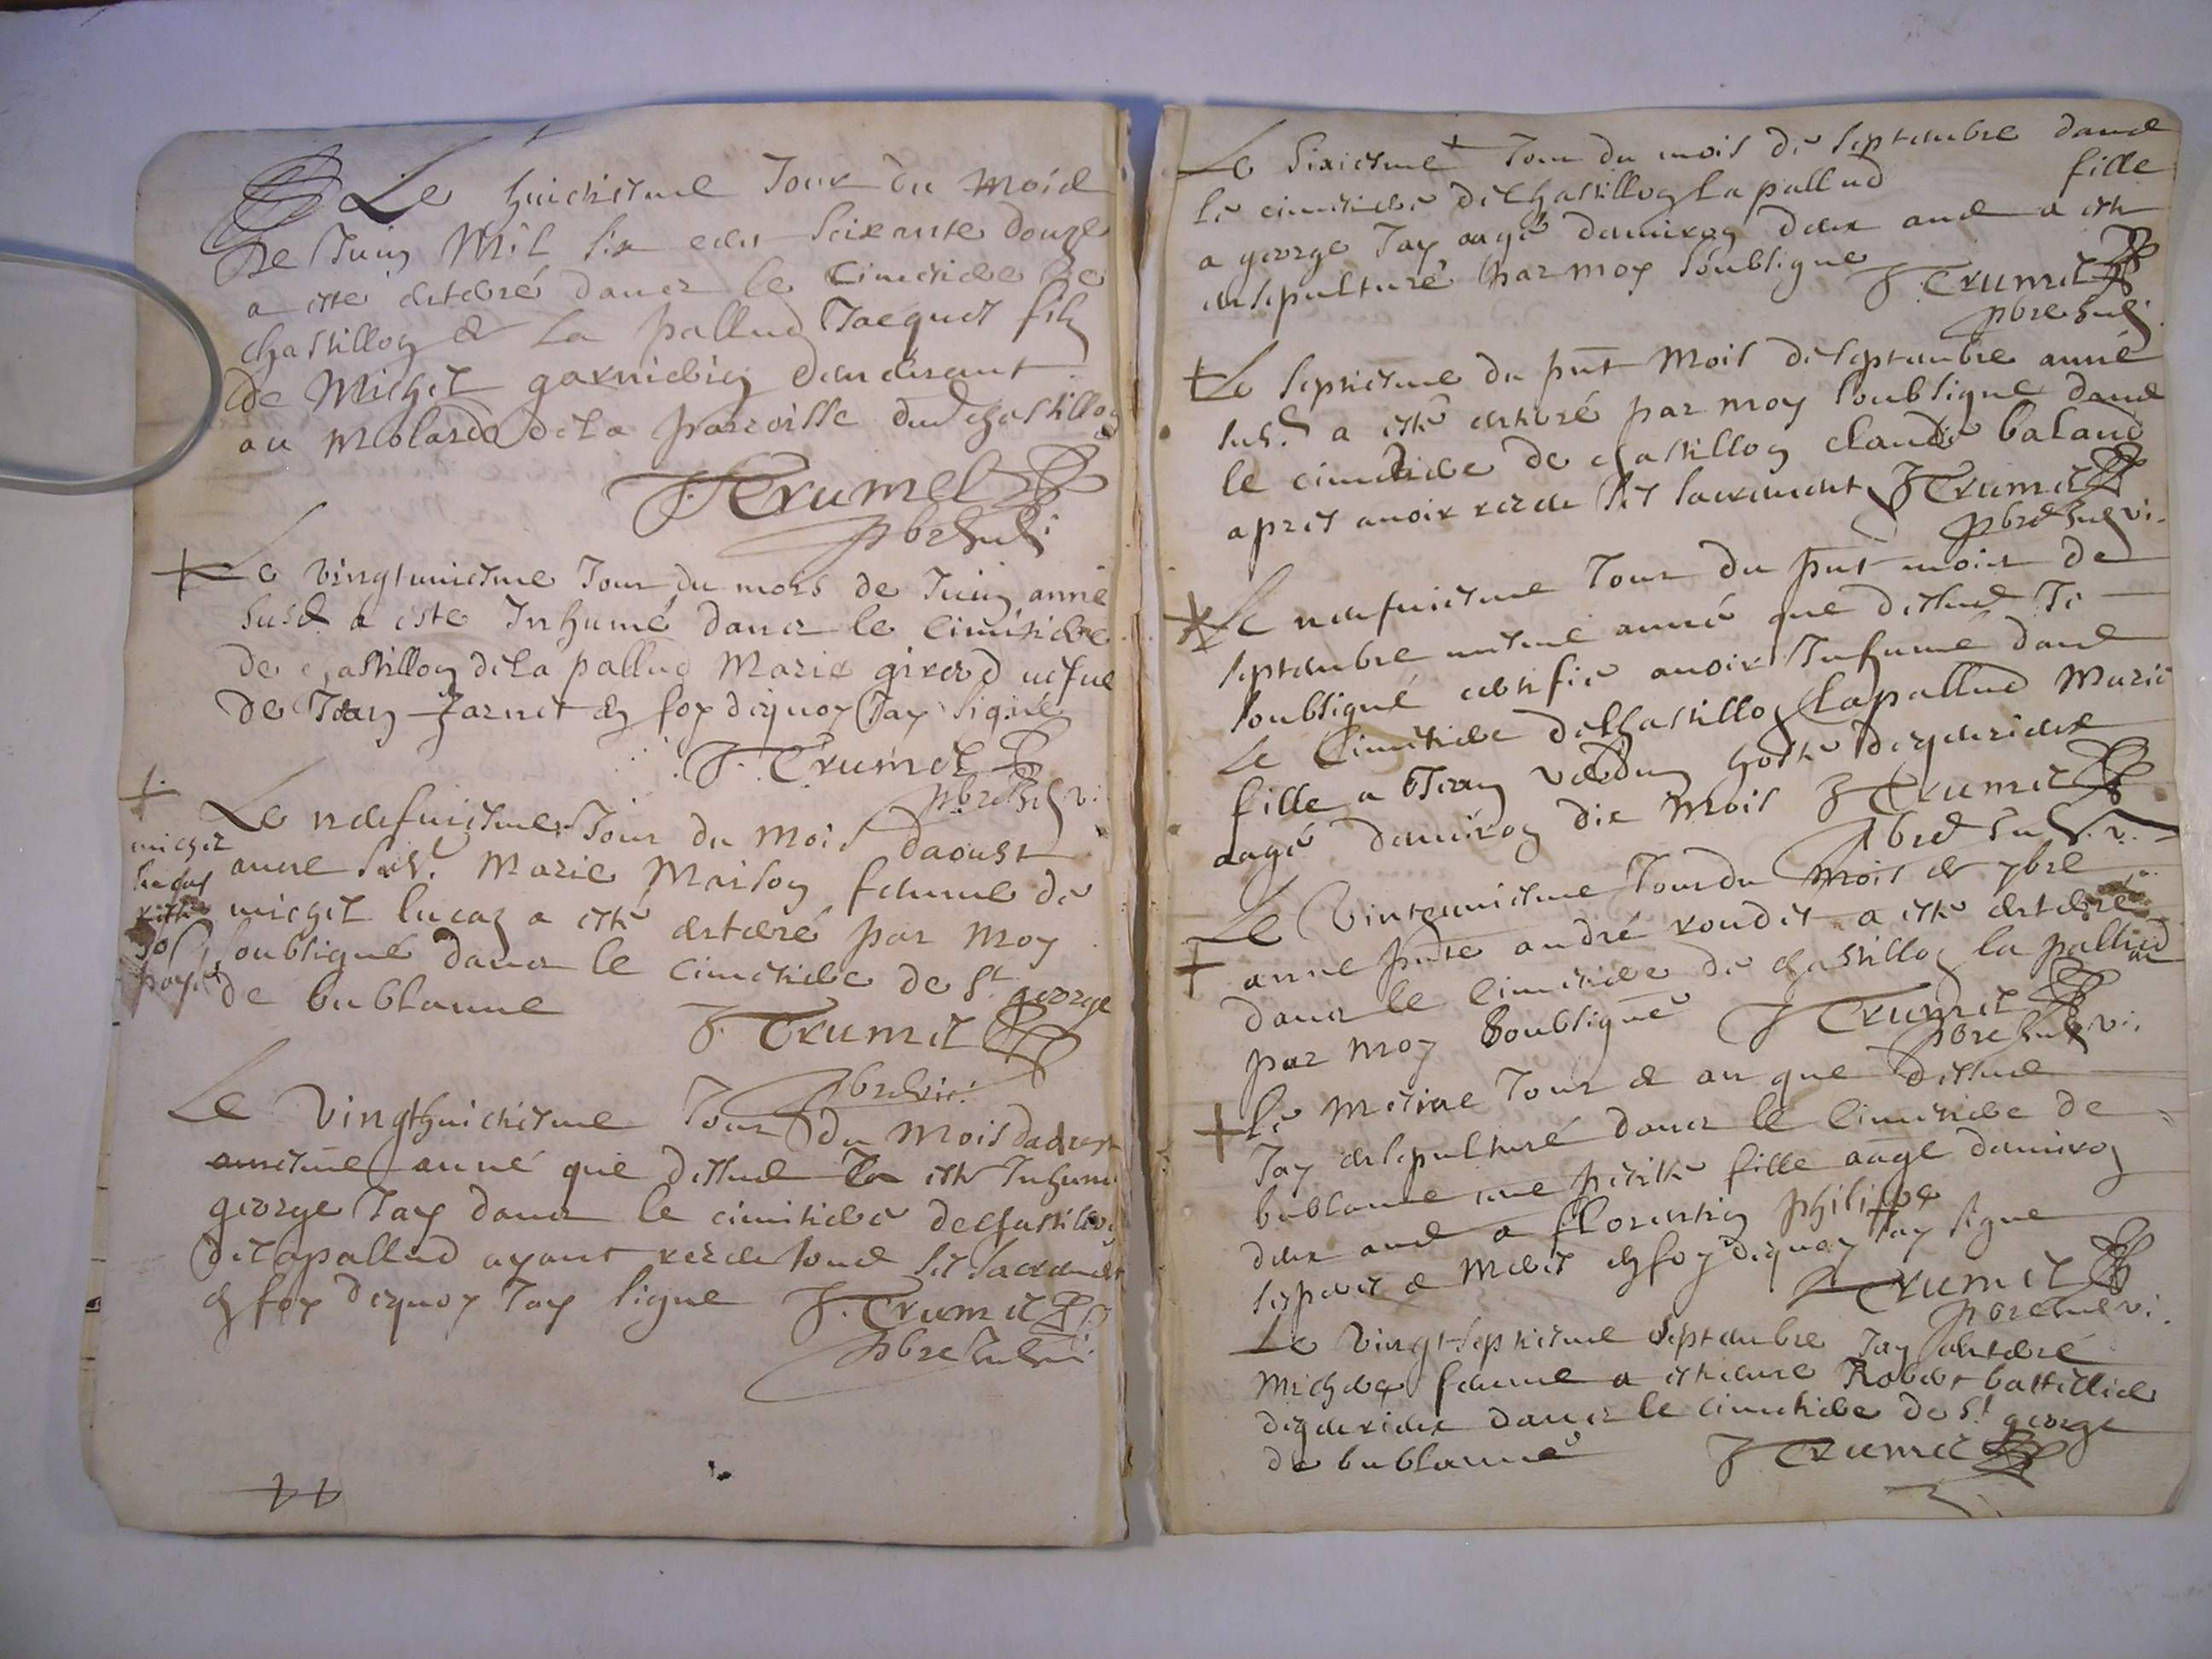 Le huictiesme Jour du Moid
De Juin Mil six cents seixante douze
a este enterré dans le Cimetiere de
Chastillon & La pallud Jacques filz
de Michel garnier demeurant
au Molard de la parroisse dud Chastillon
J. Trumel
pbre
Le vingtuniesme Jour du mois de Juin anné
susd. a este Inhumé dans le Cimitiere
de chastillon de la pallud Marie girard vefue
de Jean en foy dequoy Jay signé
J. Trumel
pbre vi.
Le neufuiesme Jour du Mois daoust
anne sus. Marie Maison femme de
michel lucaz a esté enterré par moy
soubsigné dans le Cimetiere de St george
de bublanne
J. Trumel
pbre vic.
michel
lucas
Le vingthuictiesme Jour du Mois daoust
mesme anné que dessus esté Inhumé
george Jay dans le cimitiere de Chastillon
de lapallud ayant receu tous ses sacrements
en foy dequoy Jay signe J. Trumel
pbre
Le sixiesme Jour du mois de septembre dans
le cimitiere de Chastillon lapallud fille
a george Jay aagé denuiron deux ans a esté
ensepulturé par moy soubsigne J Trumel
pbre
Le septiesme du pnt Mois de septembre anné
sus. a esté enterré par moy soubsigne dans
le cimetiere de chastillon claude baland
apres auoir receu ses sacrements J Trumel
pbre vi.
Le neufuiesme Jour du pnt mois de
septembre mesme anné que dessus Je
soubsigné certifie auoir Inhumé dans
le Cimitiere de Chastillon lapallud Marie
fille a Jean hoste
aagé denuiron dix Mois J Trumel
pbre vi.
Le vintguniesme Jour du Mois de 7bre
anne pnte andré roudet a esté enterré
dans le Cimitiere de chastillon la pallud
par moy soubsigné J Trumel
pbre vi.
Le Mesme Jour & an que dessus
Jay ensepulturé dans le Cimitiere de
bublanne une petitte fille aagé denuiron
deux ans a florentin philippe
en foy dequoy Jay signe
Trumel
pbre vi.
Le vingtseptiesme septembre Jay enterré
femme a
dans le cimitiere de St george
de bublanne J Trumel